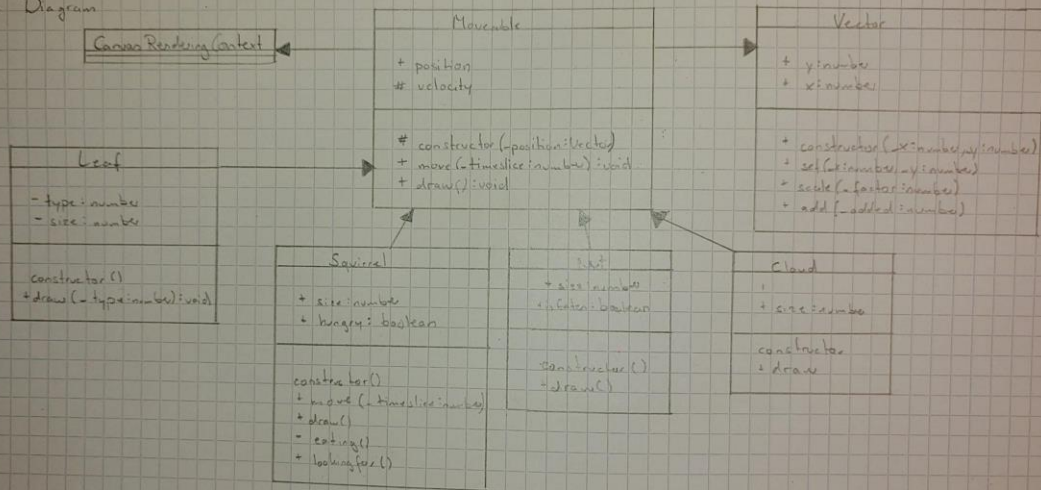 Diagram
CanvasRenderingContext
Moveable
+ position
# velocity
# constructor(_position:Vector)
+ move(_timeslice:number):void
+ draw():void
Vector
+ y:number
+ x:number
+ constructor(_x:number,_y:number)
+ set(_x:number,_y:number)
+ scale(_factor:number)
+ add(_added:number)
Leaf
- type:number
- size:number
constructor()
+ draw(_type:number):void
Squirrel
+ size:number
+ hungry:boolean
constructor()
+ move(_timeslice:number)
+ draw()
- eating()
+ lookingfor()
Nut
+ size:number
boolean
constructor()
+ draw()
Cloud
+ size:number
constructor
+ draw